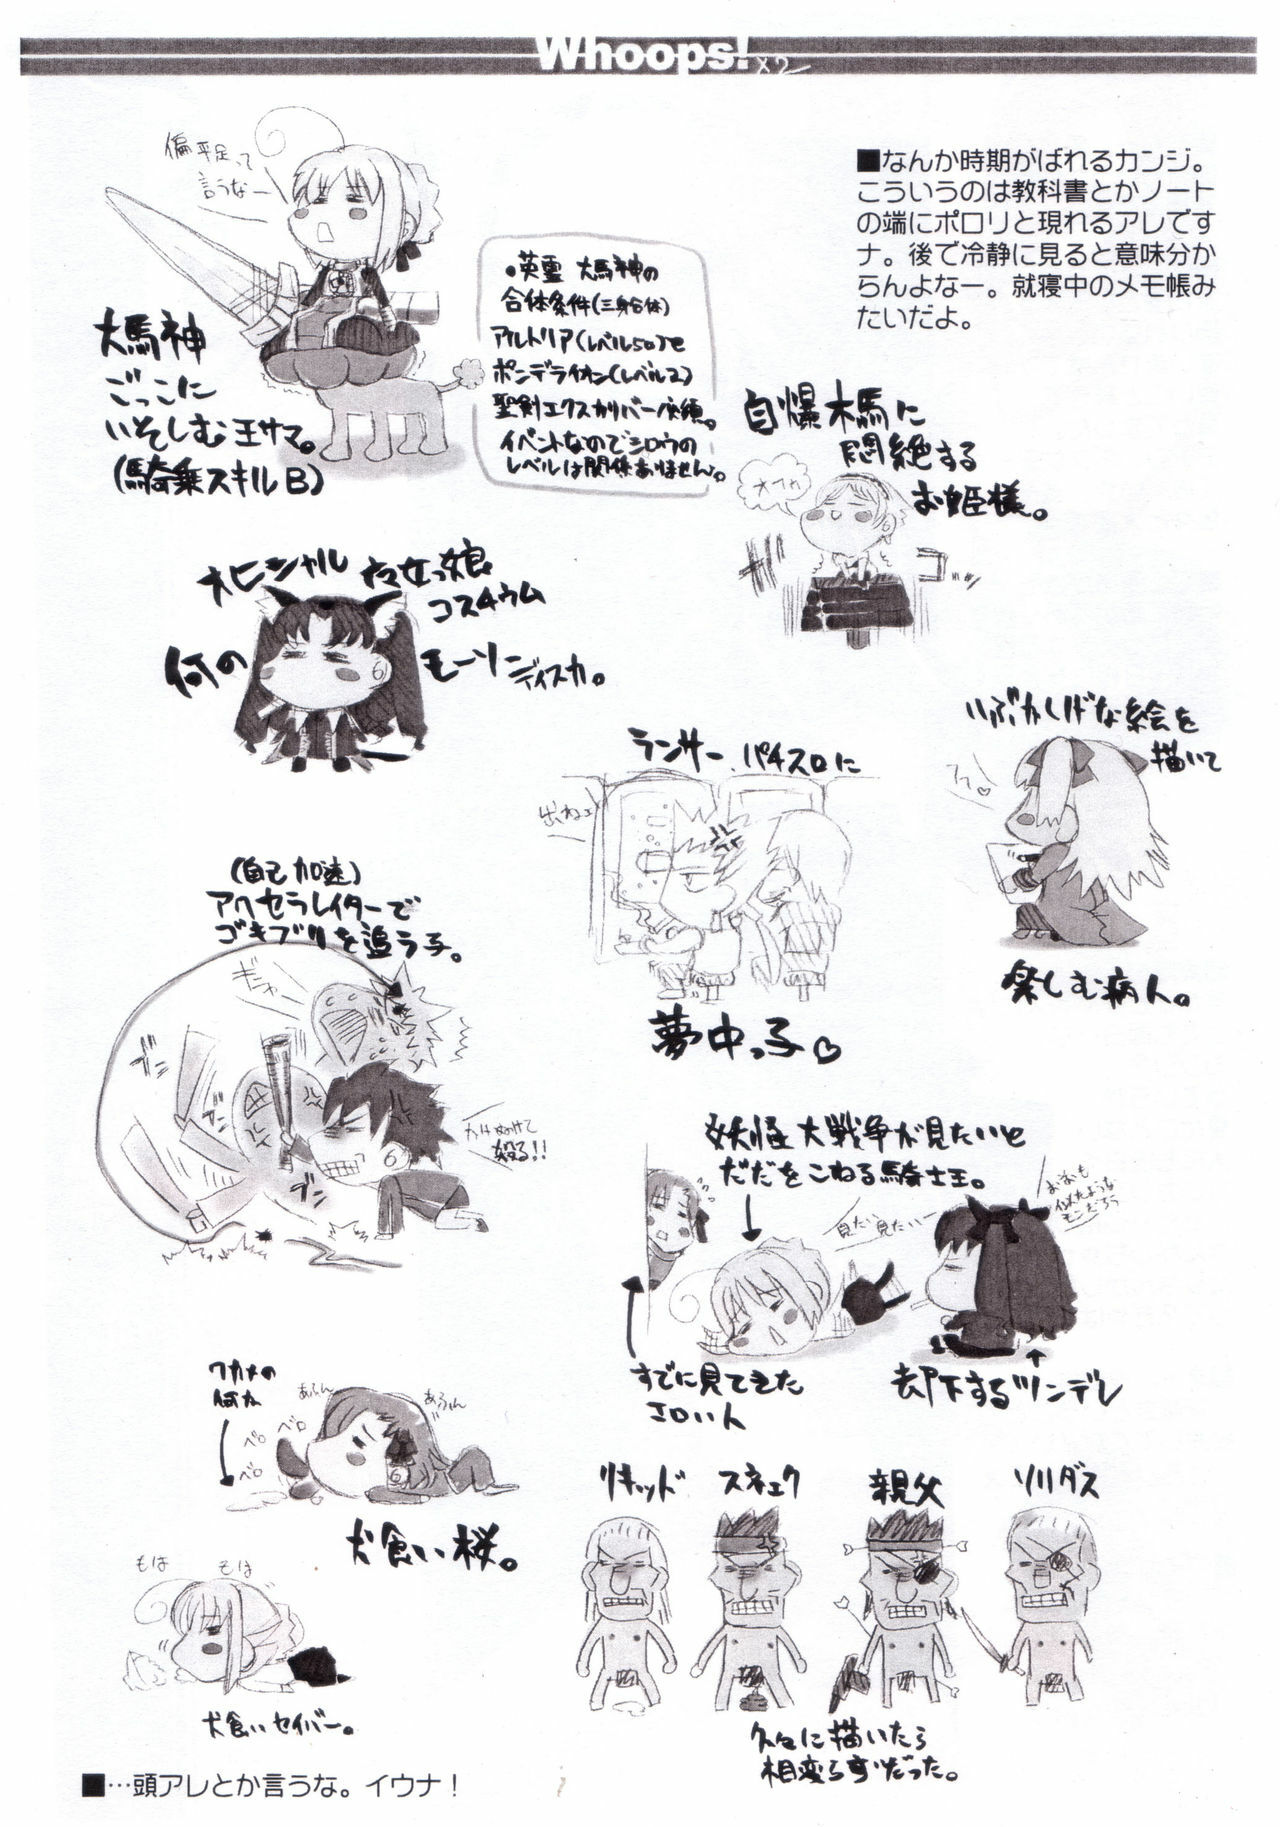 Whoops!
×2
■なんか時期がばれるカンジ。
こういうのは教科書とかノート
の端にポロリと現れるアレです
ナ。後で冷静に見ると意味分か
らんよなー。就寝中のメモ帳み
たいだよ。
偏平足って
言うなー
大馬神
ごっこに
いそしむ王サマ。
(騎乗スキルB)
・英霊 大馬神の
合体条件(三身合体)
アルトリア(レベル50)で
ポンデライオン(レベル2)
聖剣エクスカリバー必須。
イベントなのでシロウの
レベルは関係ありません。
自爆木馬に
悶絶する
お姫様。
オヒシャル
コスチウム
何の
モーソー
ディスカ。
ランサー パチスロに
出ねェ
夢中っ子♡
いぶかしげな絵を
描いて
楽しむ病人。
(自己加速)
アクセラレイターで
ゴキブリを追う子。
ギュー
殴る!!
妖怪大戦争が見たいと
だだをこねる騎士王。
見たい見たいー
似たような
モンだろう
すでに見てきた
エロい人
却下するツンデレ
ワカメの
何か
あふん
あふん
ペロ
ペロ
ペロ
犬食い桜。
もは
もは
犬食いセイバー。
リキッド
スネェク
親父
ソリダス
久々に描いたら
相変らずだった。
■…頭アレとか言うな。イウナ！